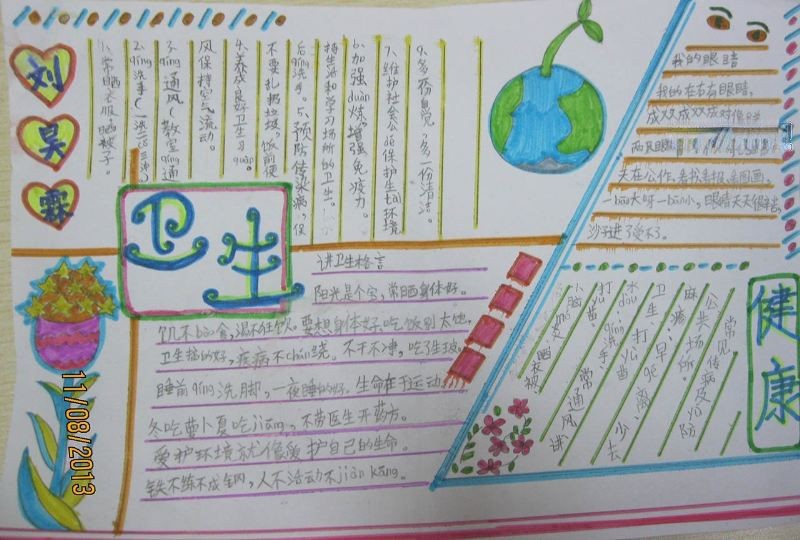 刘
昊
霖
1、常晒衣服、晒被子。
2、qíng洗手
3、qíng通风(教室qíng通
风保持空气流动。
4、养成良好卫生习guàn。
不要乱扔垃圾、饭前便
后qíng洗手。5、预防传染病,保
持生活和学习场所的卫生。
6、加强duàn炼,增强免疫力。
7、维护社会公共保护生tài环境
9、多一份自觉,多一份清洁。
卫生
讲卫生格言
阳光是个宝,常晒身体好。
饥不bǎo食,渴不狂饮。要想身体好吃饭别太饱。
卫生搞的好,疾病不chán绕。不干不净,吃了生病。
睡前qíng洗脚,一夜睡的好。生命在于运动。
冬吃萝卜夏吃jiāng,不劳医生开药方。
爱护环境就像爱护自己的生命。
铁不练不成钢,人不活动不jiàn kāng。
我的眼睛
我的左右右眼睛,
成双成双成对像
两只眼
天在公作,看书看报,看图画,
一bāo大呀一bāo小,眼睛天天很辛苦,
沙子进了受不了。
健康
常见传病及治防
公共场所。
麻
卫生、打
水dòu、早晚离、少去
打yù苗
qíng洗手、常通风讲
晒衣被、
11/08/2013